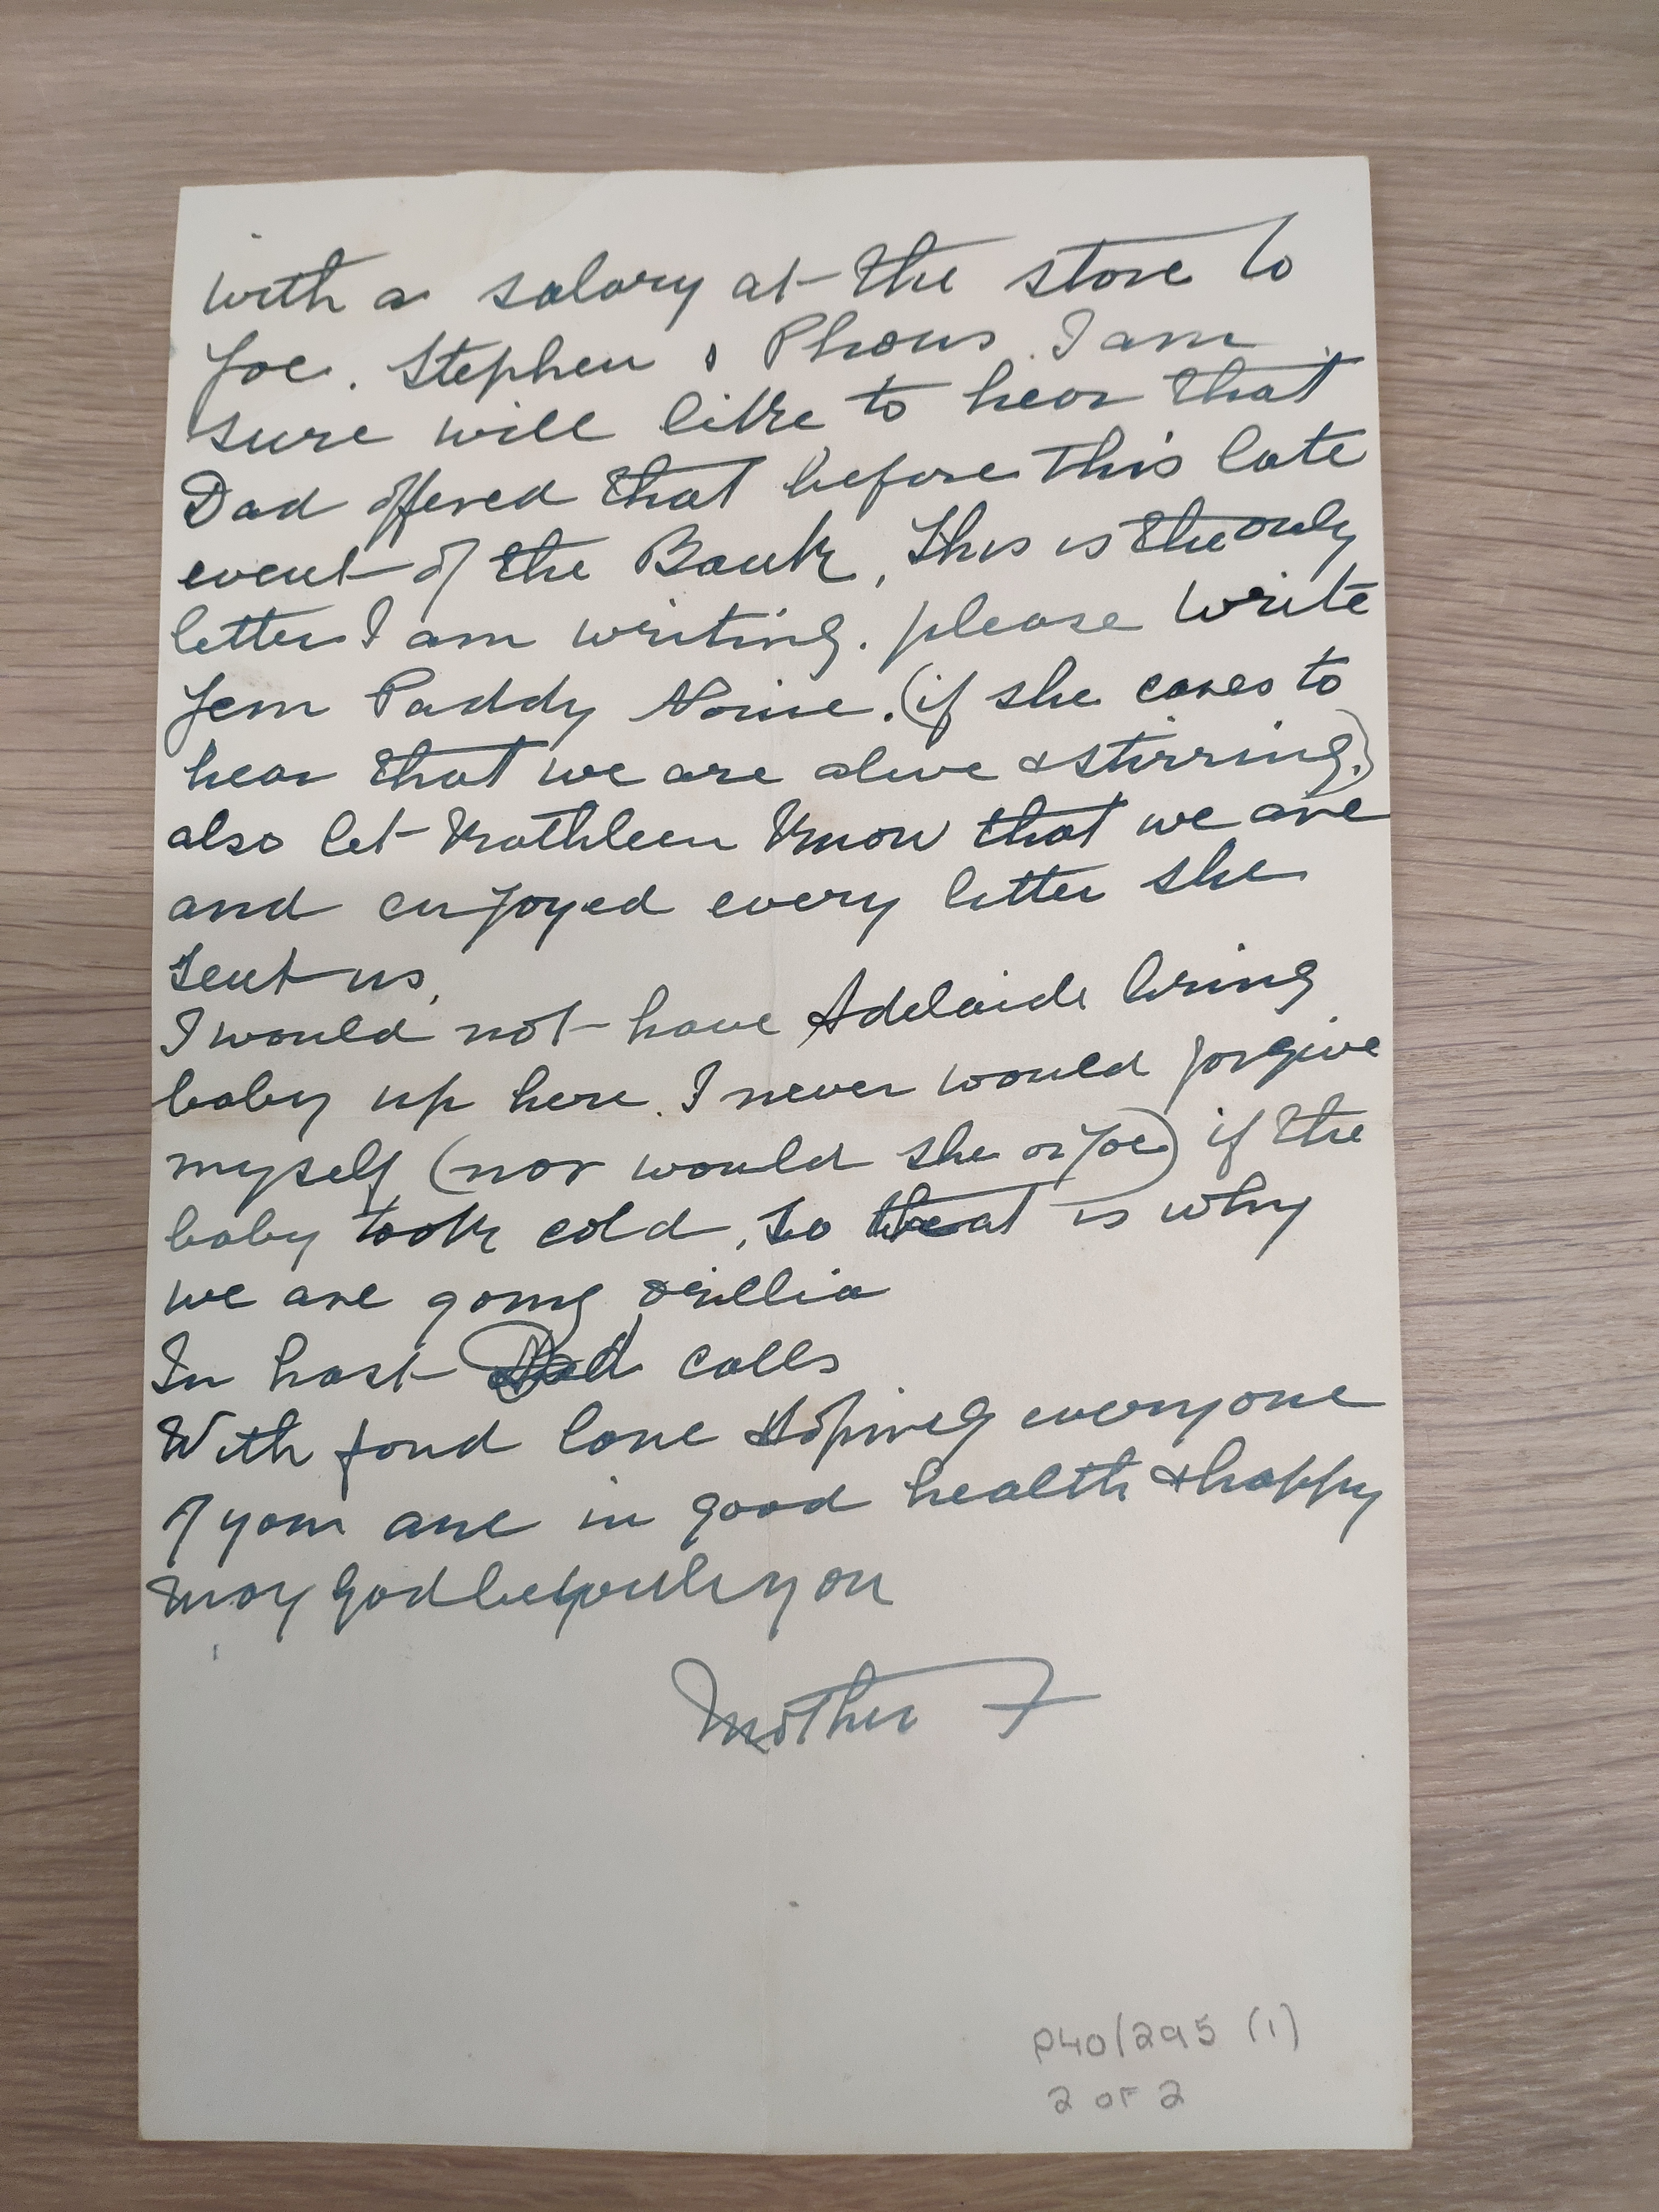 with a salary at the store to
Joe. Stephen & Phons. I am
sure will like to hear that
Dad offered that before this late
event of the Bank, This is the only
letter I am writing. please write
Jem Paddy Norine. (if she cares to
hear that we are alive & stirring.)
also let Kathleen know that we are
and enjoyed every letter she
sent us,
I would not have Adelaide bring
baby up here. I never would forgive
myself (nor would she or Joe) if the
baby took cold, so that is why
we are going Orillia
In hast Dad calls
With fond love Hoping everyone
of you are in good health & happy
May God be with you
Mother F
P40/295 (1)
2 OF 2